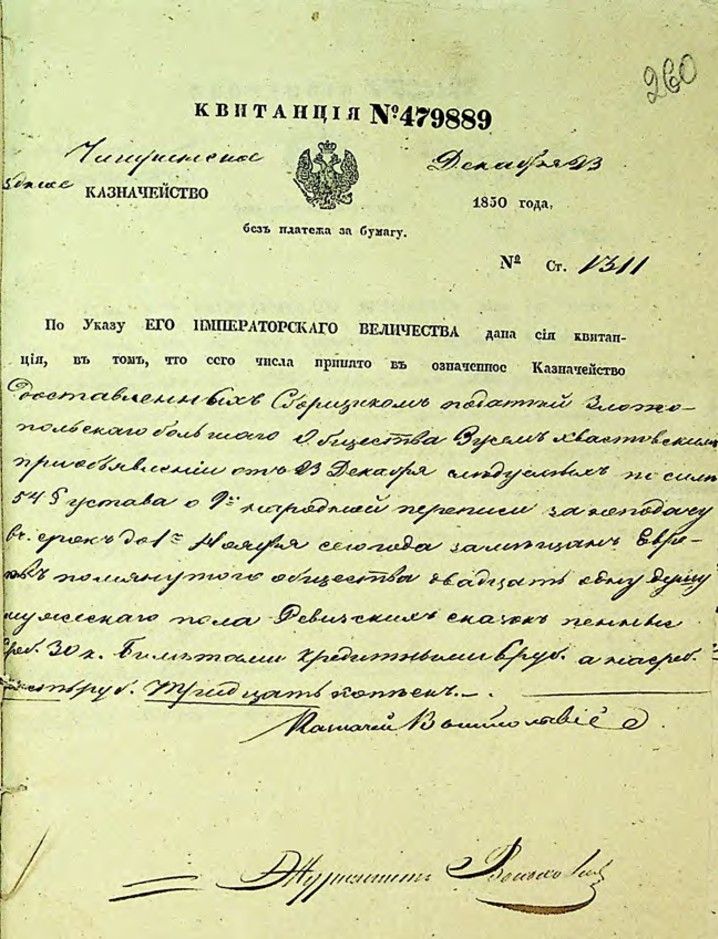 260
КВИТАНЦІЯ №479889
Чигиринское Декабря 23
уѣздное КАЗНАЧЕЙСТВО 1850 года.
безъ платежа за бумагу.
№ Ст. 1311
По Указу ЕГО ИМПЕРАТОРСКАГО ВЕЛИЧЕСТВА дана сія квитан-
ція, въ томъ, что сего числа принято въ означенное Казначейство
доставленныхъ Сборщикомъ податей Злото-
польскаго большаго Общества Зусемъ Хвастовскимъ
при объявленіи отъ 23 Декабря слѣдуемыхъ по силѣ
54 § устава о 9й народной переписи за неподачу
въ срокъ до 1го Ноября сего года за мѣщанъ Евре-
евъ помянутого общества двадцать одну душу
мужескаго пола Ревизскихъ сказокъ пенныхъ
30 к. Билѣтами кредитными 6 руб. а на сереб.
шесть руб. тридцать копѣекъ.
Казначей